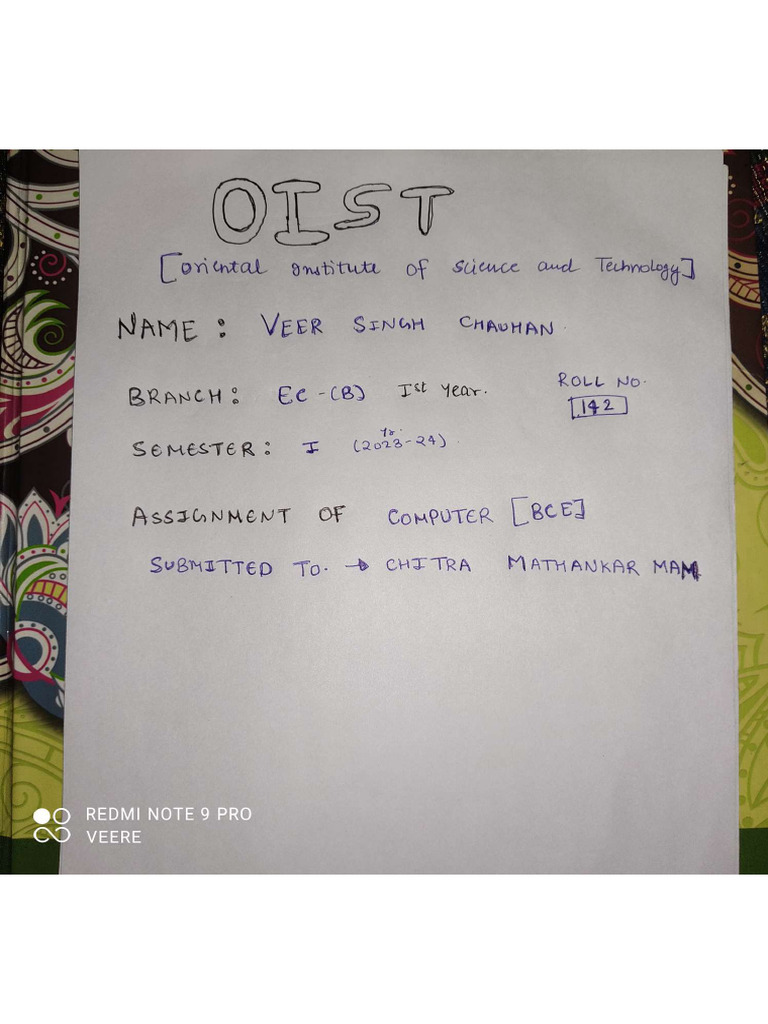 OIST
[Oriental Institute of Science and Technology]
NAME: VEER SINGH CHAUHAN.
BRANCH: EC-(B) Ist Year.
ROLL NO.
142
SEMESTER: I (2023-24) Yr.
ASSIGNMENT OF COMPUTER [BCE]
SUBMITTED TO. → CHITRA MATHANKAR MAM
REDMI NOTE 9 PRO
VEERE